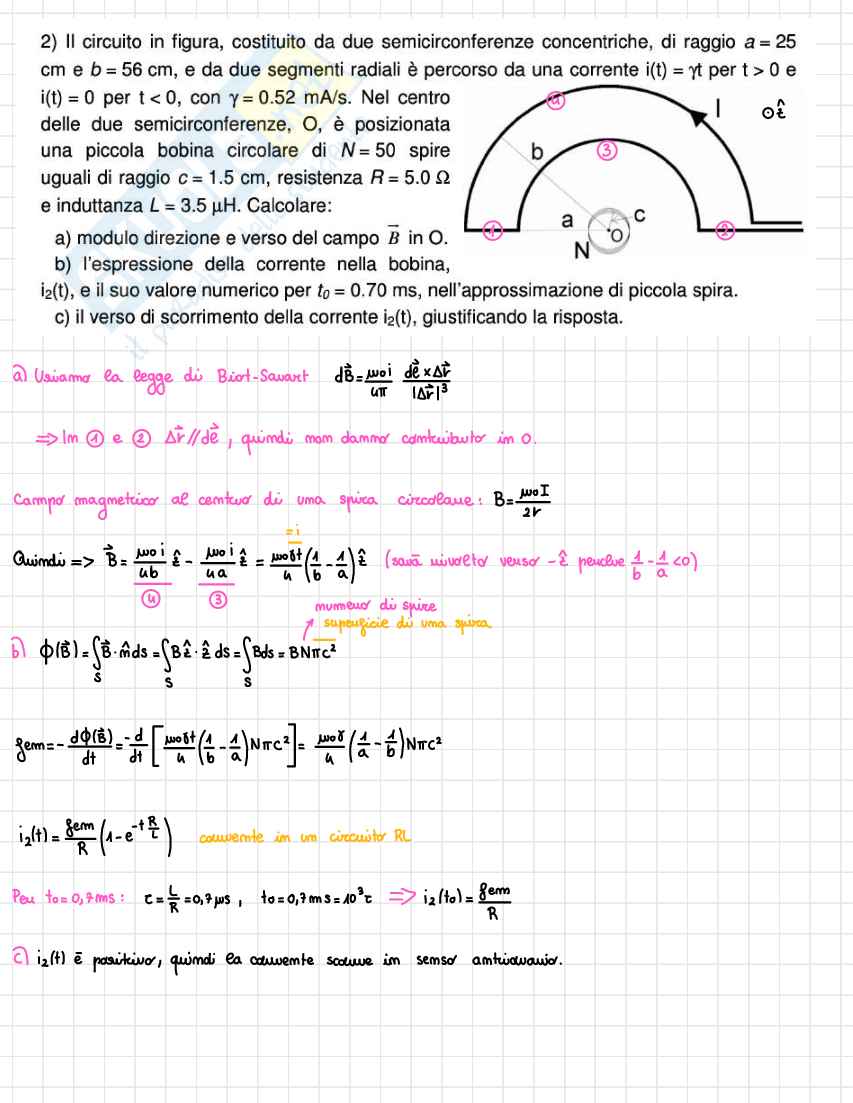 2) Il circuito in figura, costituito da due semicirconferenze concentriche, di raggio a = 25
cm e b = 56 cm, e da due segmenti radiali è percorso da una corrente i(t) = γt per t > 0 e
i(t) = 0 per t < 0, con γ = 0.52 mA/s. Nel centro
delle due semicirconferenze, O, è posizionata
una piccola bobina circolare di N = 50 spire
uguali di raggio c = 1.5 cm, resistenza R = 5.0 Ω
e induttanza L = 3.5 μH. Calcolare:
a) modulo direzione e verso del campo B⃗ in O.
b) l'espressione della corrente nella bobina,
i₂(t), e il suo valore numerico per t₀ = 0.70 ms, nell'approssimazione di piccola spira.
c) il verso di scorrimento della corrente i₂(t), giustificando la risposta.
④
I
⊙ẑ
b
③
①
a
c
O
N
②
a) Usiamo la legge di Biot-Savart dB⃗ = μ₀i/4π dℓ⃗ × Δr⃗/|Δr⃗|³
=> Im ① e ② Δr⃗ // dℓ⃗, quindi non danno contributo in O.
Campo magnetico al centro di una spira circolare: B = μ₀I/2r
=i
Quindi => B⃗ = μ₀i/4b ẑ - μ₀i/4a ẑ = μ₀γt/4 (1/b - 1/a) ẑ (sarà rivolto verso -ẑ perché 1/b - 1/a < 0)
④ ③
numero di spire
superficie di una spira
b) ϕ(B⃗) = ∫_S B⃗·n̂ ds = ∫_S Bẑ·ẑ ds = ∫_S B ds = BNπc²
fem = - dϕ(B⃗)/dt = -d/dt [μ₀γt/4 (1/b - 1/a) Nπc²] = μ₀γ/4 (1/a - 1/b) Nπc²
i₂(t) = fem/R (1 - e^(-t R/L)) corrente in un circuito RL
Per t₀ = 0,7 ms: τ = L/R = 0,7 μs, t₀ = 0,7 ms = 10³τ => i₂(t₀) = fem/R
c) i₂(t) è positivo, quindi la corrente scorre in senso antiorario.